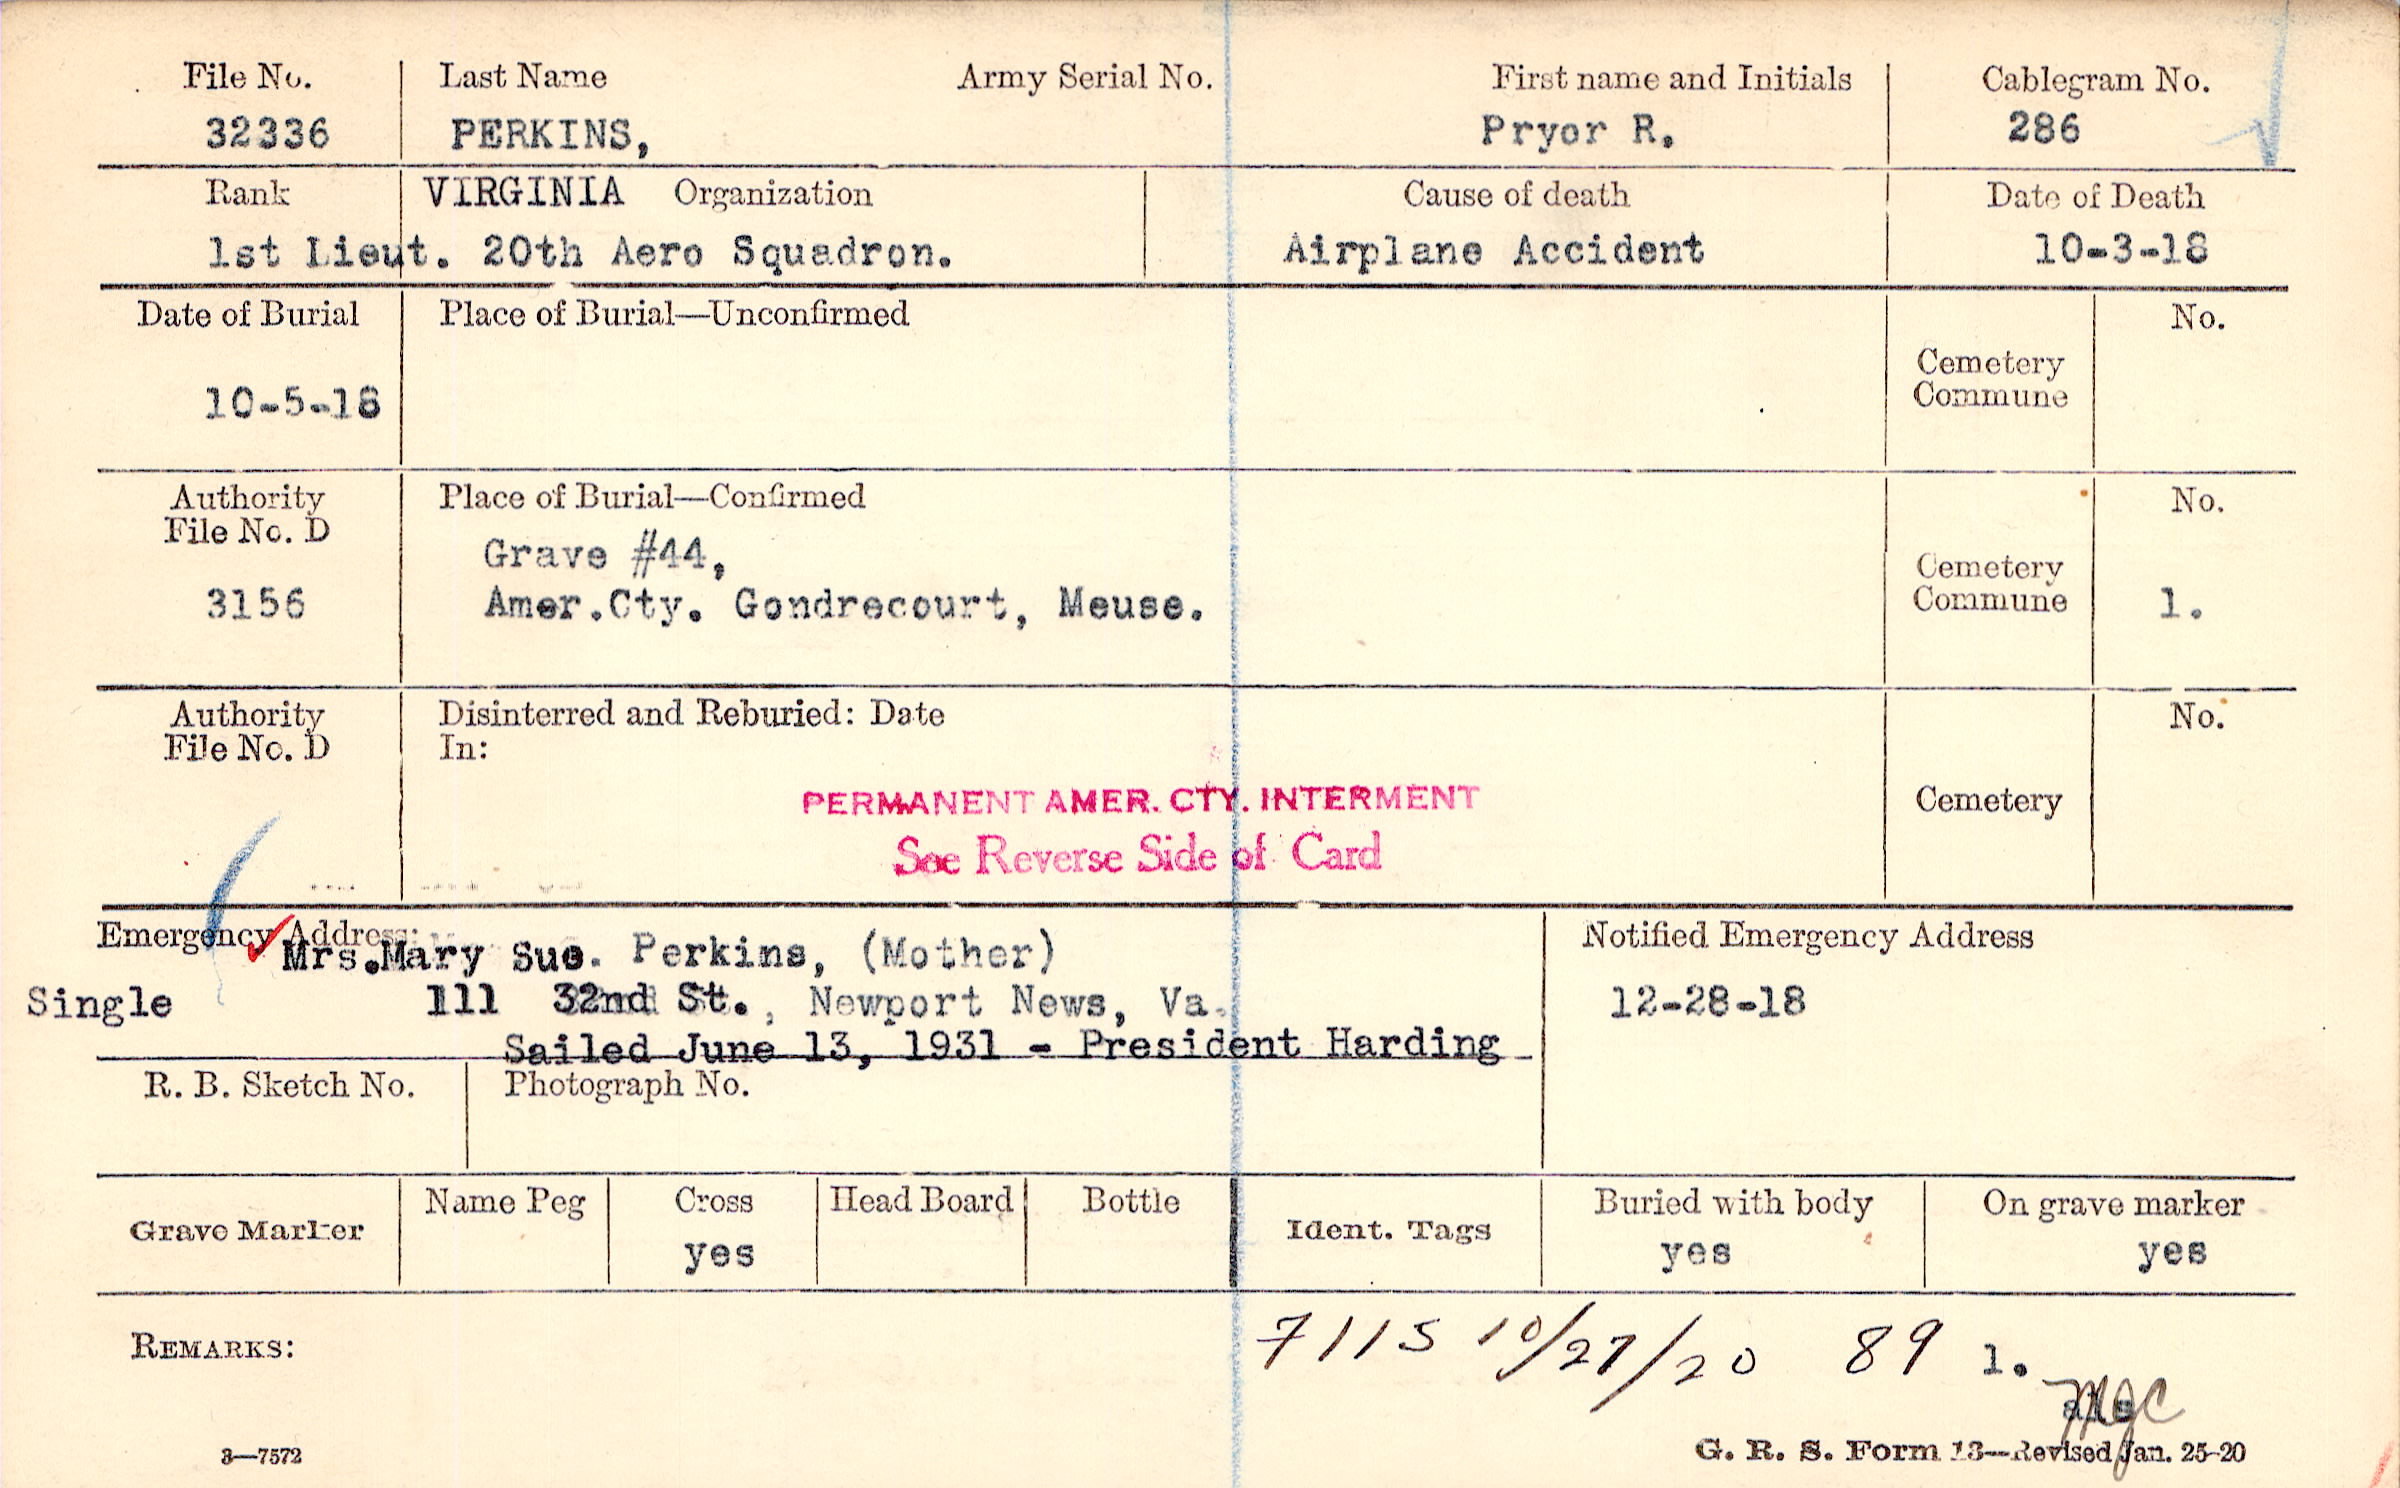 File No. Last Name Army Serial No. First name and Initials Cablegram No.
32336 PERKINS, Pryor R. 286
Rank VIRGINIA Organization Cause of death Date of Death
1st Lieut. 20th Aero Squadron. Airplane Accident 10-3-18
Date of Burial Place of Burial—Unconfirmed No.
Cemetery
Commune
10-5-18
Authority Place of Burial—Confirmed No.
File No. D
Grave #44,
Cemetery
3156 Amer.Cty. Gondrecourt, Meuse. Commune 1.
Authority Disinterred and Reburied: Date No.
File No. D In:
PERMANENT AMER. CTY. INTERMENT Cemetery
See Reverse Side of Card
Emergency Address: Notified Emergency Address
Mrs.Mary Sue. Perkins, (Mother)
Single 111 32nd St., Newport News, Va. 12-28-18
Sailed June 13, 1931 - President Harding
R. B. Sketch No. Photograph No.
Grave Marker Name Peg Cross Head Board Bottle Ident. Tags Buried with body On grave marker
yes yes yes
REMARKS: 7115 10/27/20 89 1.
3—7572 G. R. S. Form 13—Revised Jan. 25-20